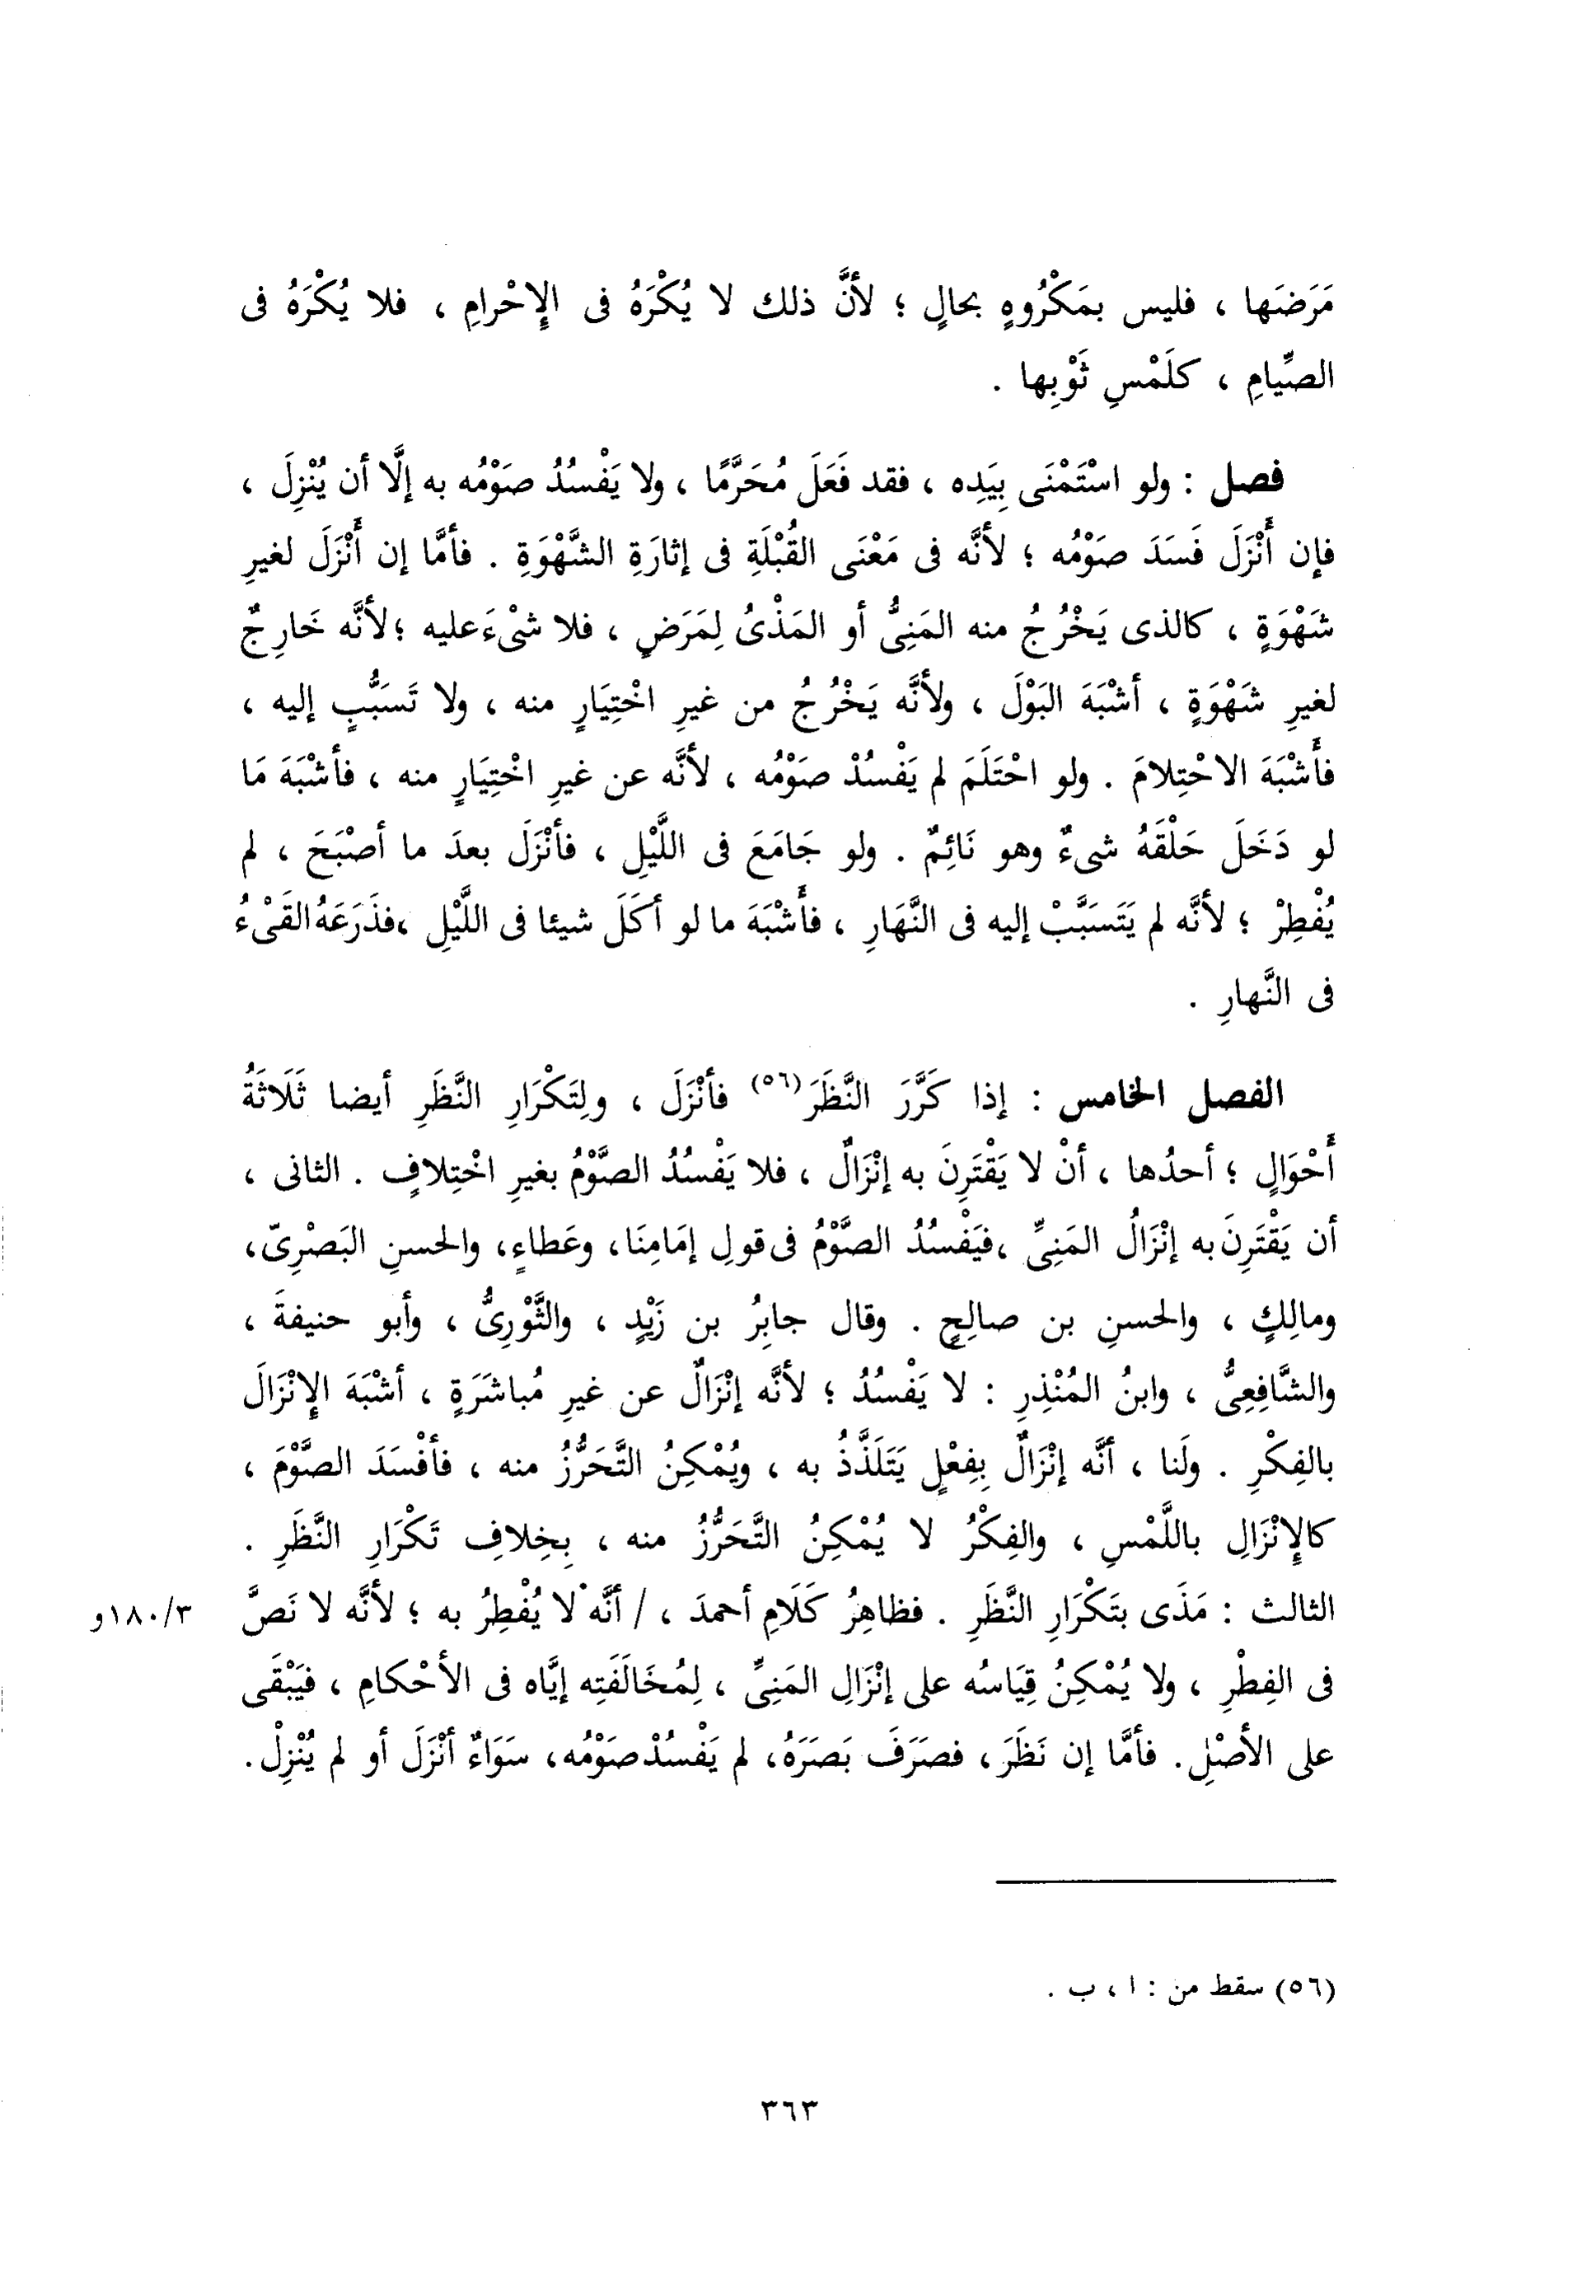 مَرَضَها ، فليس بمَكْرُوهٍ بحالٍ ؛ لأنَّ ذلك لا يُكْرَهُ فى الإِحْرامِ ، فلا يُكْرَهُ فى
الصِّيامِ ، كلَمْسِ ثَوْبِها .
فصل : ولو اسْتَمْنَى بِيَدِه ، فقد فَعَلَ مُحَرَّمًا ، ولا يَفْسُدُ صَوْمُه به إلَّا أن يُنْزِلَ ،
فإن أَنْزَلَ فَسَدَ صَوْمُه ؛ لأنَّه فى مَعْنَى القُبْلَةِ فى إثارَةِ الشَّهْوَةِ . فأمَّا إن أَنْزَلَ لغيرِ
شَهْوَةٍ ، كالذى يَخْرُجُ منه المَنِىُّ أو المَذْىُ لِمَرَضٍ ، فلا شىْءَ عليه ؛ لأنَّه خَارِجٌ
لغيرِ شَهْوَةٍ ، أشْبَهَ البَوْلَ ، ولأنَّه يَخْرُجُ من غيرِ اخْتِيَارٍ منه ، ولا تَسَبُّبٍ إليه ،
فأَشْبَهَ الاحْتِلامَ . ولو احْتَلَمَ لم يَفْسُدْ صَوْمُه ، لأنَّه عن غيرِ اخْتِيَارٍ منه ، فأشْبَهَ مَا
لو دَخَلَ حَلْقَهُ شىءٌ وهو نَائِمٌ . ولو جَامَعَ فى اللَّيْلِ ، فأنْزَلَ بعدَ ما أصْبَحَ ، لم
يُفْطِرْ ؛ لأنَّه لم يَتَسَبَّبْ إليه فى النَّهَارِ ، فأَشْبَهَ ما لو أكَلَ شيئا فى اللَّيْلِ ، فذَرَعَهُ القَىْءُ
فى النَّهارِ .
الفصل الخامس : إذا كَرَّرَ النَّظَرَ(٥٦) فأنْزَلَ ، ولِتَكْرَارِ النَّظَرِ أيضا ثَلَاثَةُ
أَحْوَالٍ ؛ أحدُها ، أنْ لا يَقْتَرِنَ به إنْزَالٌ ، فلا يَفْسُدُ الصَّوْمُ بغيرِ اخْتِلافٍ . الثانى ،
أن يَقْتَرِنَ به إنْزَالُ المَنِىِّ ، فيَفْسُدُ الصَّوْمُ فى قولِ إمَامِنَا ، وعَطاءٍ، والحسنِ البَصْرِىّ،
ومالِكٍ ، والحسنِ بن صالِحٍ . وقال جابِرُ بن زَيْدٍ ، والثَّوْرِىُّ ، وأبو حنيفةَ ،
والشَّافِعِىُّ ، وابنُ المُنْذِرِ : لا يَفْسُدُ ؛ لأنَّه إنْزَالٌ عن غيرِ مُباشَرَةٍ ، أشْبَهَ الإِنْزَالَ
بالفِكْرِ . ولَنا ، أنَّه إنْزَالٌ بِفِعْلٍ يَتَلَذَّذُ به ، ويُمْكِنُ التَّحَرُّزُ منه ، فأفْسَدَ الصَّوْمَ ،
كالإِنْزَالِ باللَّمْسِ ، والفِكْرُ لا يُمْكِنُ التَّحَرُّزُ منه ، بِخِلافِ تَكْرَارِ النَّظَرِ .
الثالث : مَذَى بتَكْرَارِ النَّظَرِ . فظاهِرُ كَلَامِ أحمدَ ، / أنَّه لا يُفْطِرُ به ؛ لأنَّه لا نَصَّ ١٨٠/٣و
فى الفِطْرِ ، ولا يُمْكِنُ قِيَاسُه على إنْزَالِ المَنِىِّ ، لِمُخَالَفَتِه إيَّاه فى الأحْكامِ ، فيَبْقَى
على الأصْلِ . فأمَّا إن نَظَرَ ، فصَرَفَ بَصَرَهُ، لم يَفْسُدْ صَوْمُه، سَوَاءٌ أنْزَلَ أو لم يُنْزِلْ.
(٥٦) سقط من : ا ، ب .
٣٦٣